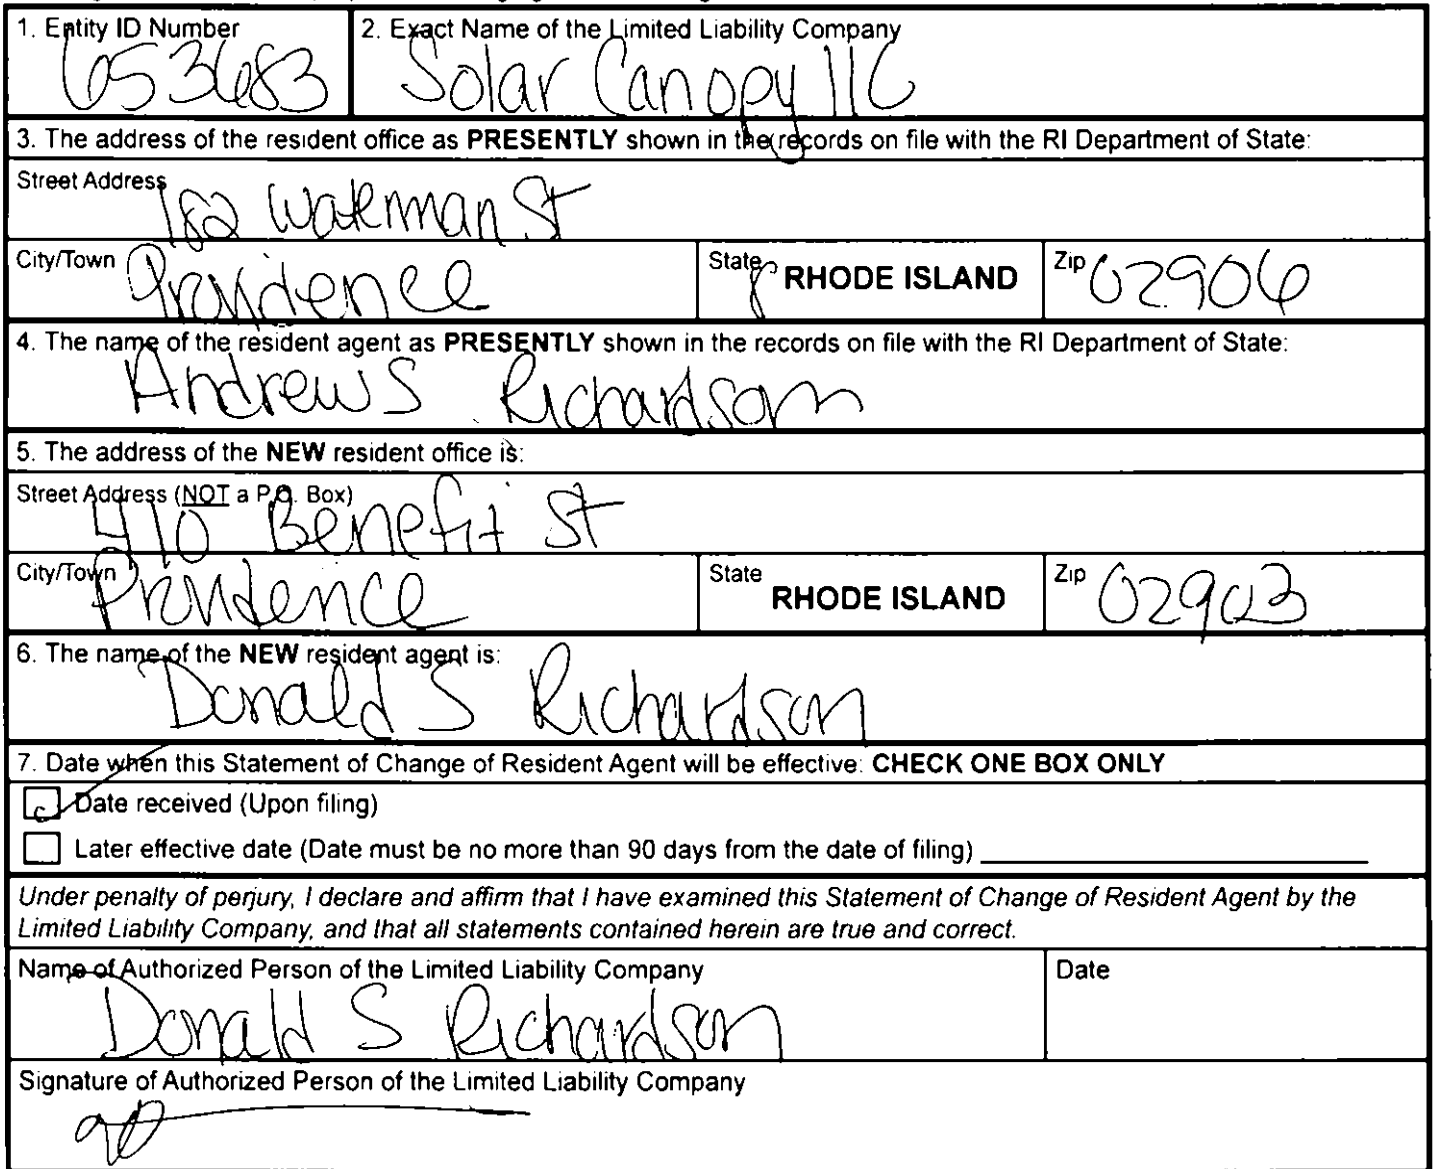 1. Entity ID Number
653683
2. Exact Name of the Limited Liability Company
Solar Canopy llC
3. The address of the resident office as PRESENTLY shown in the records on file with the RI Department of State:
Street Address
182 Waterman St
City/Town
Providence
State
RHODE ISLAND
Zip
02906
4. The name of the resident agent as PRESENTLY shown in the records on file with the RI Department of State:
Andrew S Richardson
5. The address of the NEW resident office is:
Street Address (NOT a P.O. Box)
410 Benefit St
City/Town
Providence
State
RHODE ISLAND
Zip
02903
6. The name of the NEW resident agent is:
Donald S Richardson
7. Date when this Statement of Change of Resident Agent will be effective: CHECK ONE BOX ONLY
Date received (Upon filing)
Later effective date (Date must be no more than 90 days from the date of filing)
Under penalty of perjury, I declare and affirm that I have examined this Statement of Change of Resident Agent by the
Limited Liability Company, and that all statements contained herein are true and correct.
Name of Authorized Person of the Limited Liability Company
Donald S Richardson
Date
Signature of Authorized Person of the Limited Liability Company